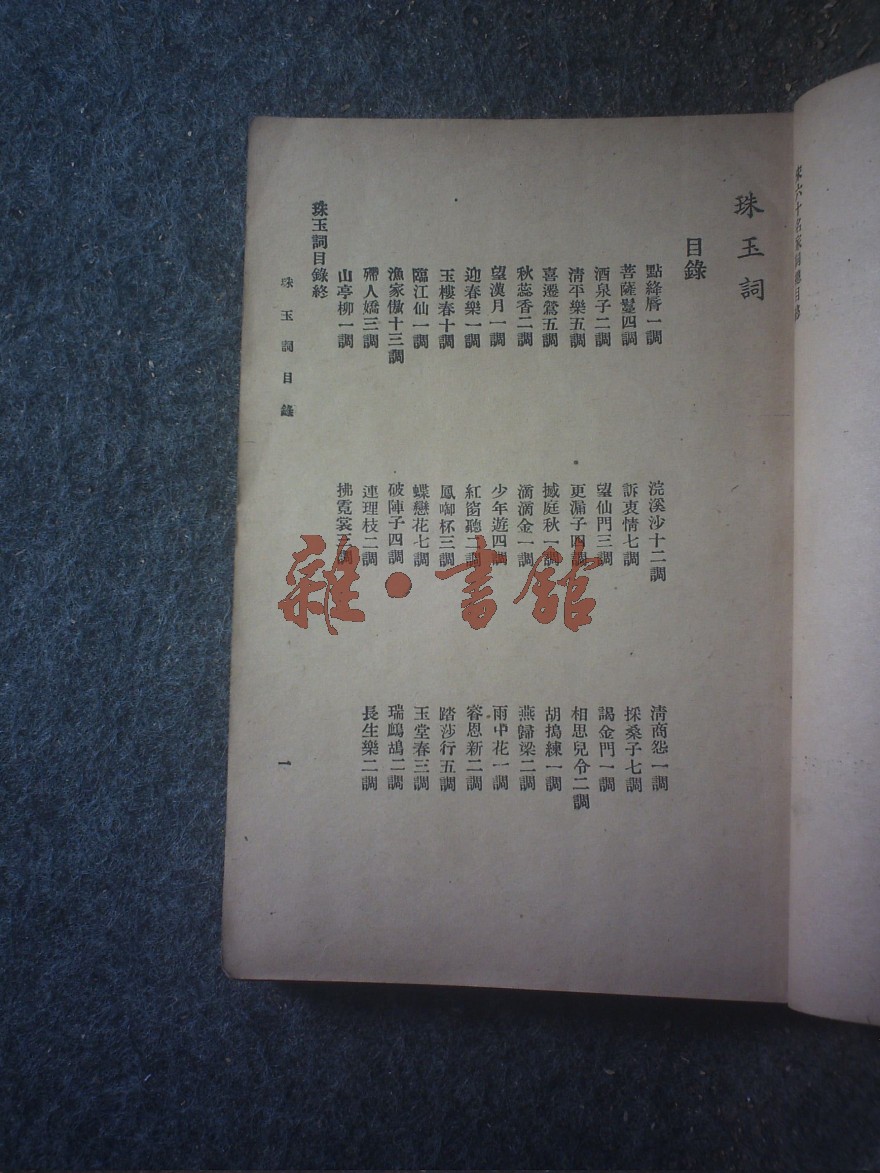 珠玉詞
目錄
點絳脣一調
浣溪沙十二調
清商怨一調
菩薩鬘四調
訴衷情七調
採桑子七調
酒泉子二調
望仙門三調
謁金門一調
清平樂五調
更漏子四調
相思兒令二調
喜遷鶯五調
撼庭秋一調
胡搗練一調
秋蕊香二調
滴滴金一調
燕歸梁二調
望漢月一調
少年遊四調
雨中花一調
迎春樂一調
紅窗聽二調
睿恩新二調
玉樓春十調
鳳啣杯三調
踏莎行五調
臨江仙一調
蝶戀花七調
玉堂春三調
漁家傲十三調
破陣子四調
瑞鷓鴣二調
殢人嬌三調
連理枝二調
長生樂二調
山亭柳一調
拂霓裳三調
珠玉詞目錄終
珠玉詞目錄
一
宋六十名家詞總目終
雜·書館